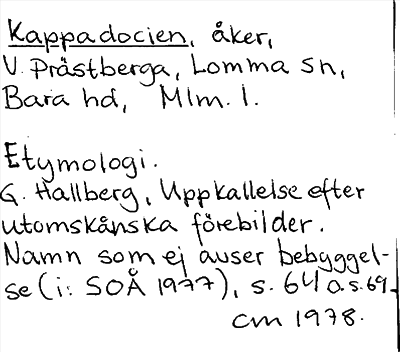 Kappadocien, åker,
V. Prästberga, Lomma sn,
Bara hd, Mlm. l.
Etymologi.
G. Hallberg, Uppkallelse efter
utomskånska förebilder.
Namn som ej avser bebyggel-
se (i: SOÅ 1977), s. 64 o. s. 69.
CM 1978.